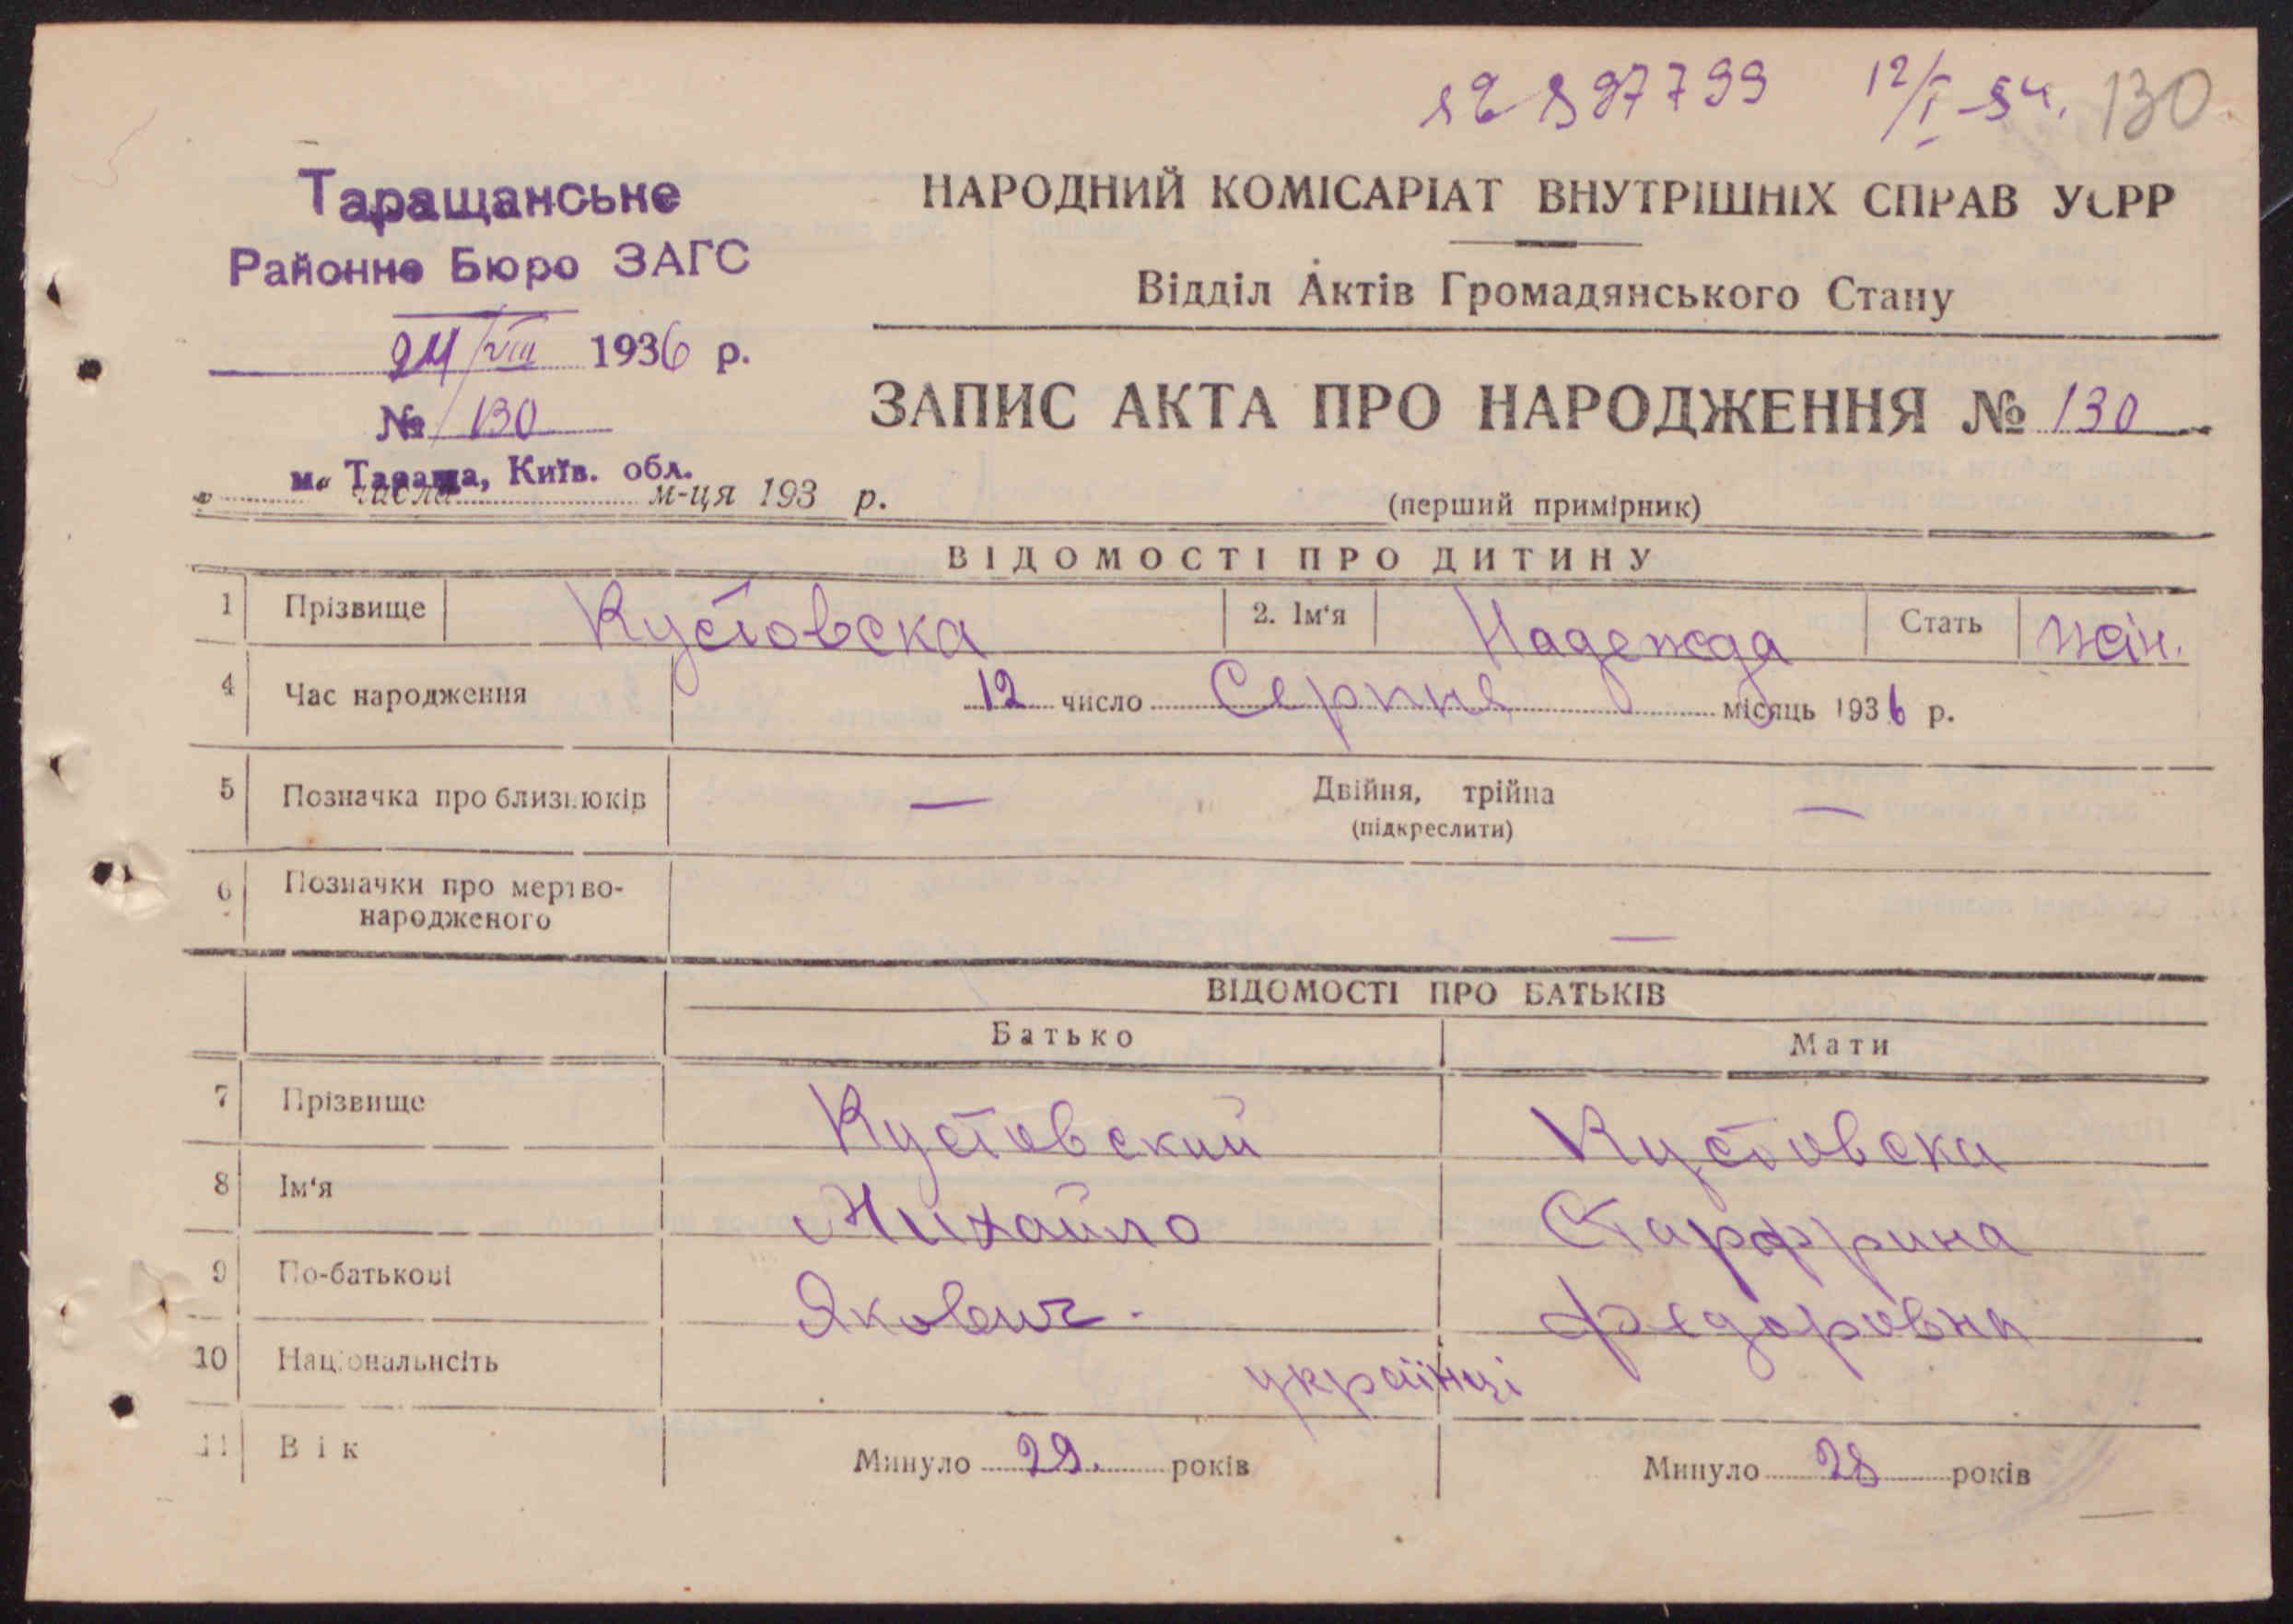 12/I-54. 130
Таращанське
Районне Бюро ЗАГС
24/VIII 1936 р.
№ 130
м. Тараща, Київ. обл.
числа м-ця 193 р.
НАРОДНИЙ КОМІСАРІАТ ВНУТРІШНІХ СПРАВ УСРР
Відділ Актів Громадянського Стану
ЗАПИС АКТА ПРО НАРОДЖЕННЯ № 130
(перший примірник)
ВІДОМОСТІ ПРО ДИТИНУ
1 Прізвище Кустовска 2. Ім‘я Надежда Стать жін.
4 Час народження 12 число Серпня місяць 1936 р.
5 Позначка про близнюків — Двійня, трійна —
(підкреслити)
6 Позначки про мертво-
народженого —
ВІДОМОСТІ ПРО БАТЬКІВ
Батько Мати
7 Прізвище Кустовский Кустовска
8 Ім‘я Михайло
9 По-батькові Якович. Федоровна
10 Національнсіть українці
11 Вік Минуло 29. років Минуло 28 років